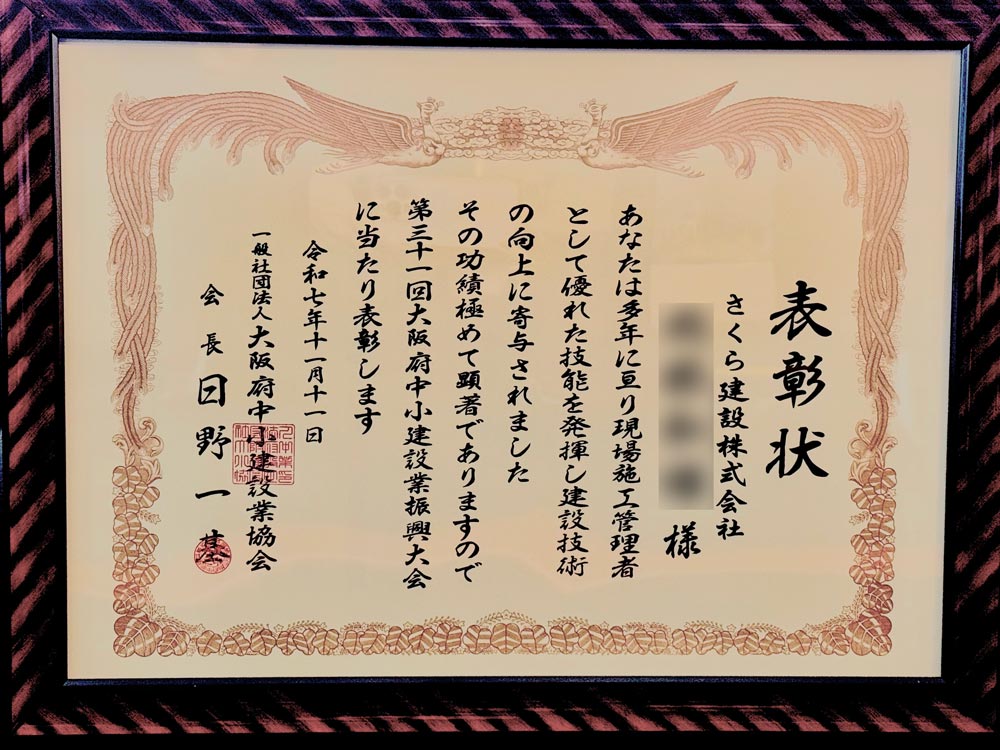 表彰状
さくら建設株式会社
様
あなたは多年に亘り現場施工管理者
として優れた技能を発揮し建設技術
の向上に寄与されました
その功績極めて顕著でありますので
第三十一回大阪府中小建設業振興大会
に当たり表彰します
令和七年十一月十一日
一般社団法人大阪府中小建設業協会
会長日野一基